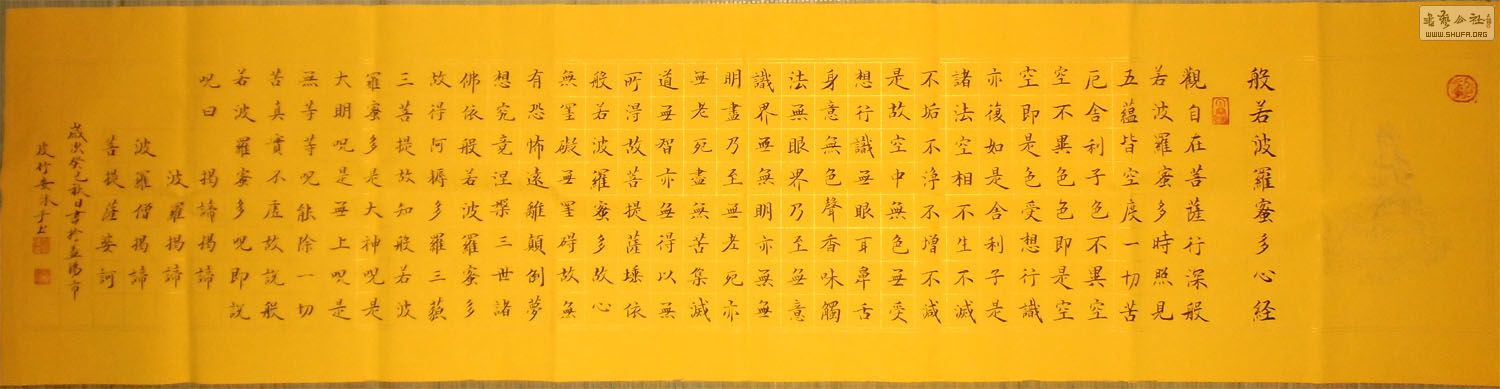 般若波羅蜜多心経
觀自在菩薩行深般
若波羅蜜多時照見
五蘊皆空度一切苦
厄舍利子色不異空
空不異色色即是空
空即是色受想行識
亦復如是舍利子是
諸法空相不生不滅
不垢不淨不增不減
是故空中無色无受
想行識无眼耳鼻舌
身意無色聲香味觸
法無眼界乃至無意
識界无無明亦無无
明盡乃至无老死亦
无老死盡無苦集滅
道无智亦无得以無
所得故菩提薩埵依
般若波羅蜜多故心
無罣礙无罣碍故無
有恐怖遠離顛倒夢
想究竟涅槃三世諸
佛依般若波羅蜜多
故得阿耨多羅三藐
三菩提故知般若波
羅蜜多是大神呪是
大明呪是無上呪是
无等等呪能除一切
苦真實不虛故說般
若波羅蜜多呪即說
呪曰 揭諦揭諦
波羅揭諦
波羅僧揭諦
菩提薩婆訶
歲次癸巳秋日書於益陽市
WWW.SHUFA.ORG